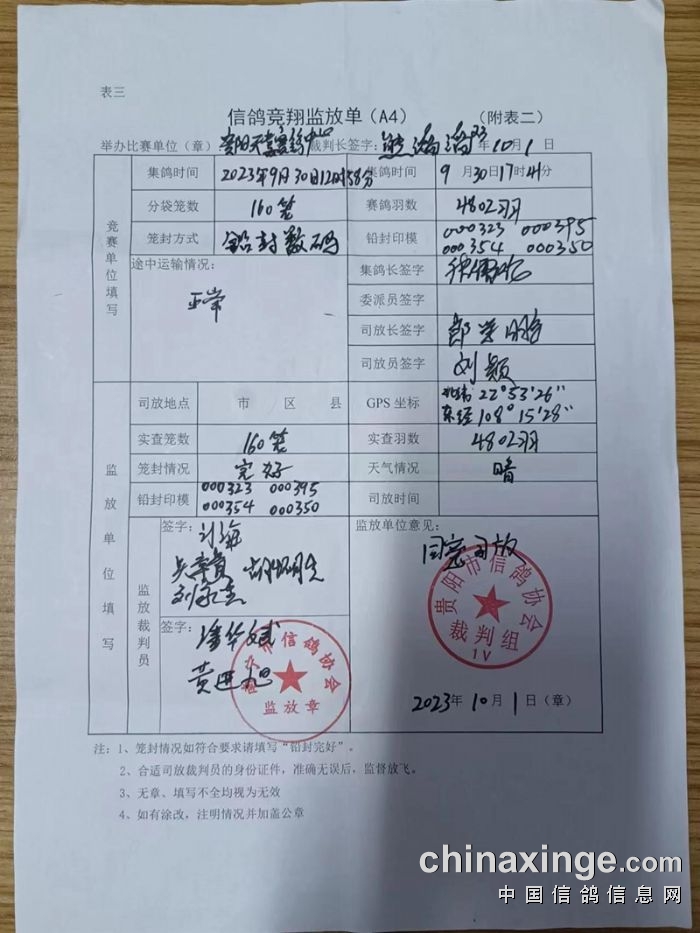 表三
信鸽竞翔监放单（A4） （附表二）
举办比赛单位（章） 裁判长签字: 年10月1日
竞赛单位填写
集鸽时间 2023年9月30日12时58分 集鸽时间 9月30日17时41分
分袋笼数 160笼 赛鸽羽数 4802羽
笼封方式 铅封数码 铅封印模 000323 000395
000354 000350
途中运输情况: 集鸽长签字
正常 委派员签字
司放长签字
司放员签字 刘颖
监放单位填写
司放地点 市 区 县 GPS 坐标 北纬 22°53'26"
东经 108°15'28"
实查笼数 160笼 实查羽数 4802羽
笼封情况 完好 天气情况 晴
铅封印模 000323 000395
000354 000350
司放时间
监放裁判员
签字: 刘海
签字:
黄进旭
市信鸽协会
监放章
监放单位意见:
同意司放
贵阳市信鸽协会
裁判组
1V
2023年10月1日（章）
注: 1、笼封情况如符合要求请填写“铅封完好”。
2、合适司放裁判员的身份证件，准确无误后，监督放飞。
3、无章、填写不全均视为无效
4、如有涂改，注明情况并加盖公章
chinaxinge.com
中国信鸽信息网